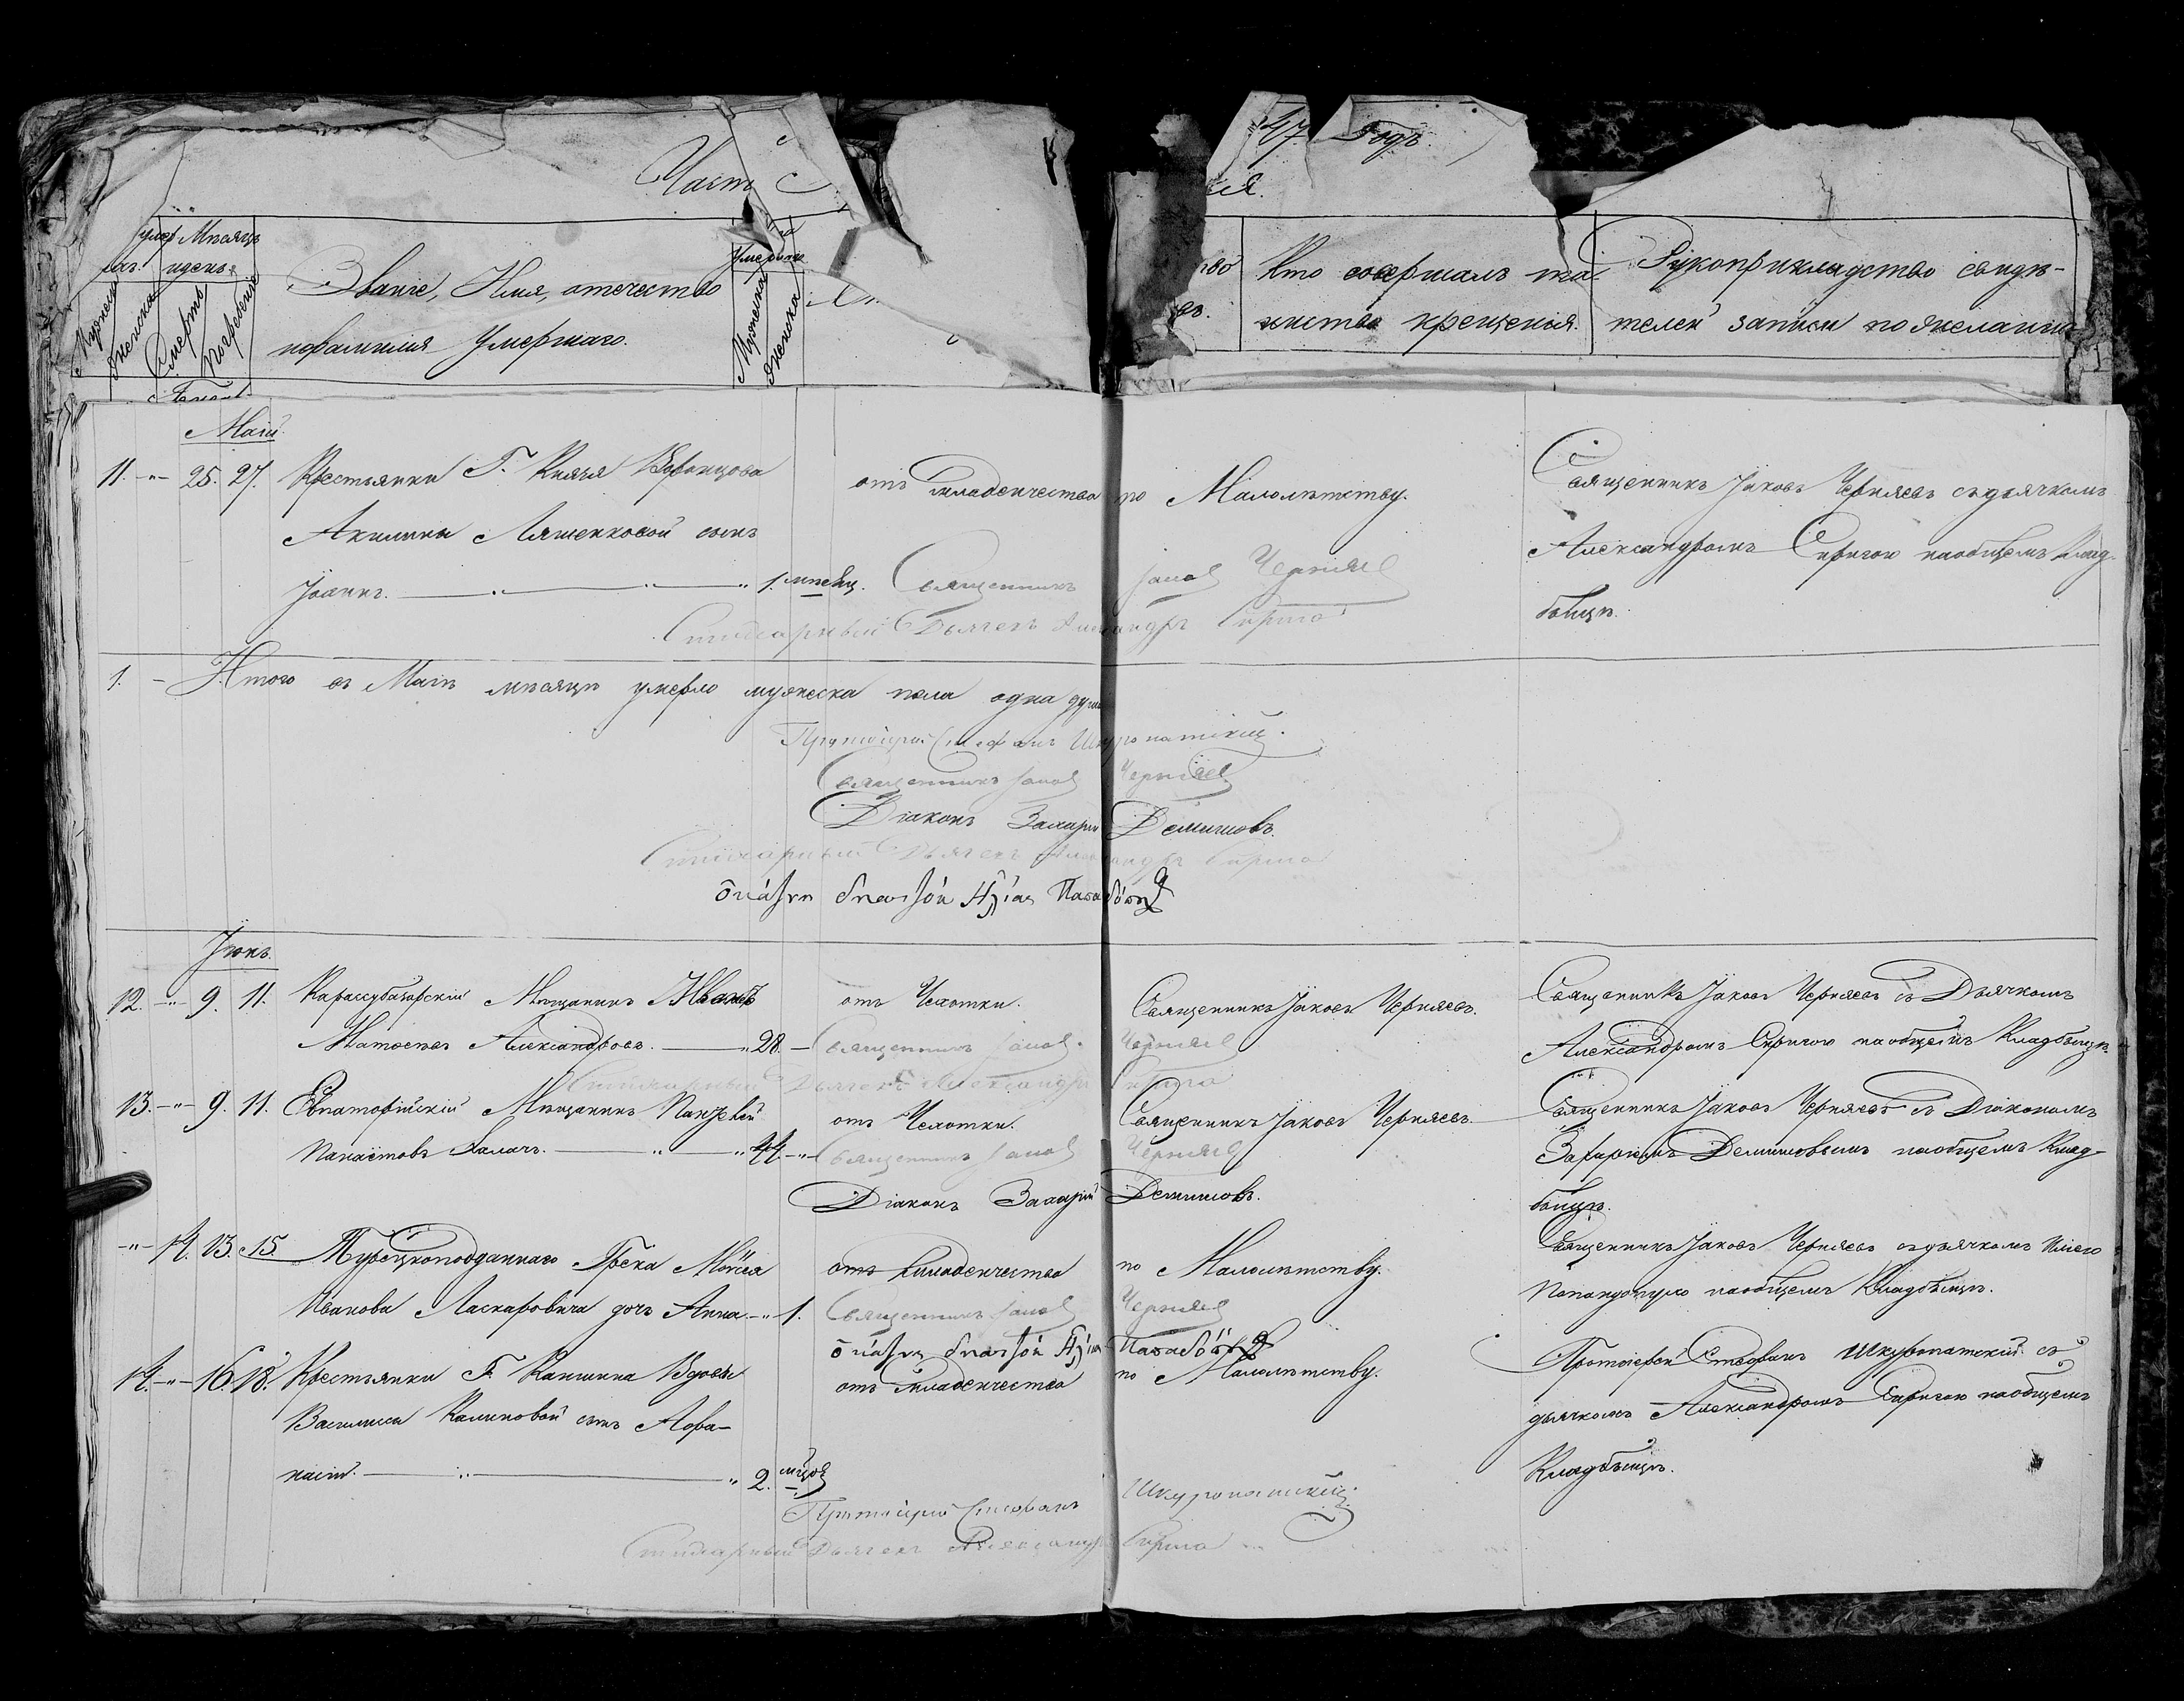 Часть
47. Годъ.
Мѣсяцъ
и день.
Званіе, Имя, отечество
и фамилія Умершаго.
Мужеска
Женска
Смерть
Погребеніе
Мужеска
Женска
Кто совершалъ та-
инство крещенія.
Рукоприкладство свидѣ-
телей записи по желанію
Май.
11. -"- 25. 27. Крестьянки Г. Князя Воронцова
Акилины Ляшенковой сынъ
Іоаннъ. 1. мѣсяц.
отъ младенчества
по Малолѣтству.
Священникъ Іаковъ Черняевъ съ дьячкомъ
Александромъ Сиригою на общемъ Клад-
бищѣ.
Священникъ Іаков Черняев
Стихарный Дьячекъ Александръ Сирига
1. - Итого въ Маіѣ мѣсяцѣ умерло мужеска пола одна душа
Протоіерей Стефанъ Шкуропатскій.
Священникъ Іаков Черняев
Діаконъ Захарій Демишовъ.
Стихарный Дьячекъ Александръ Сирига
Іюнь.
12. -"- 9. 11. Карасубазарскій Мѣщанинъ Иванъ
Матвѣевъ Александровъ. 28.
отъ Чехотки.
Священникъ Іаковъ Черняевъ.
Священникъ Іаковъ Черняевъ съ Дьячкомъ
Александромъ Сиригою на общемъ Кладбищѣ.
Священникъ Іаков Черняев
Стихарный Дьячекъ Александръ Сирига
13. -"- 9. 11. Евпаторійскій Мѣщанинъ
44.
отъ Чехотки.
Священникъ Іаковъ Черняевъ.
Священникъ Іаковъ Черняевъ съ Діакономъ
Захаріемъ Демишовымъ на общемъ Клад-
бищѣ.
Священникъ Іаков Черняев
Діаконъ Захарій Демишовъ.
-"- 14. 13. 15. Турецкоподданнаго Грека Моисея
Иванова Ласкаровича дочь Анна. -"- 1.
отъ младенчества
по Малолѣтству.
Священникъ Іаковъ Черняевъ съ дьячкомъ Иліею
Попандопуло на общемъ Кладбищѣ.
Священникъ Іаков Черняев
14. -"- 16. 18. Крестьянки Г. Вдовы
Василисы Калиновой сынъ Афа-
насій. 2. мѣсяц
отъ младенчества
по Малолѣтству.
Протоіерей Стефанъ Шкуропатскій съ
дьячкомъ Александромъ Сиригою на общемъ
Кладбищѣ.
Протоіерей Стефанъ Шкуропатскій.
Стихарный Дьячекъ Александръ Сирига